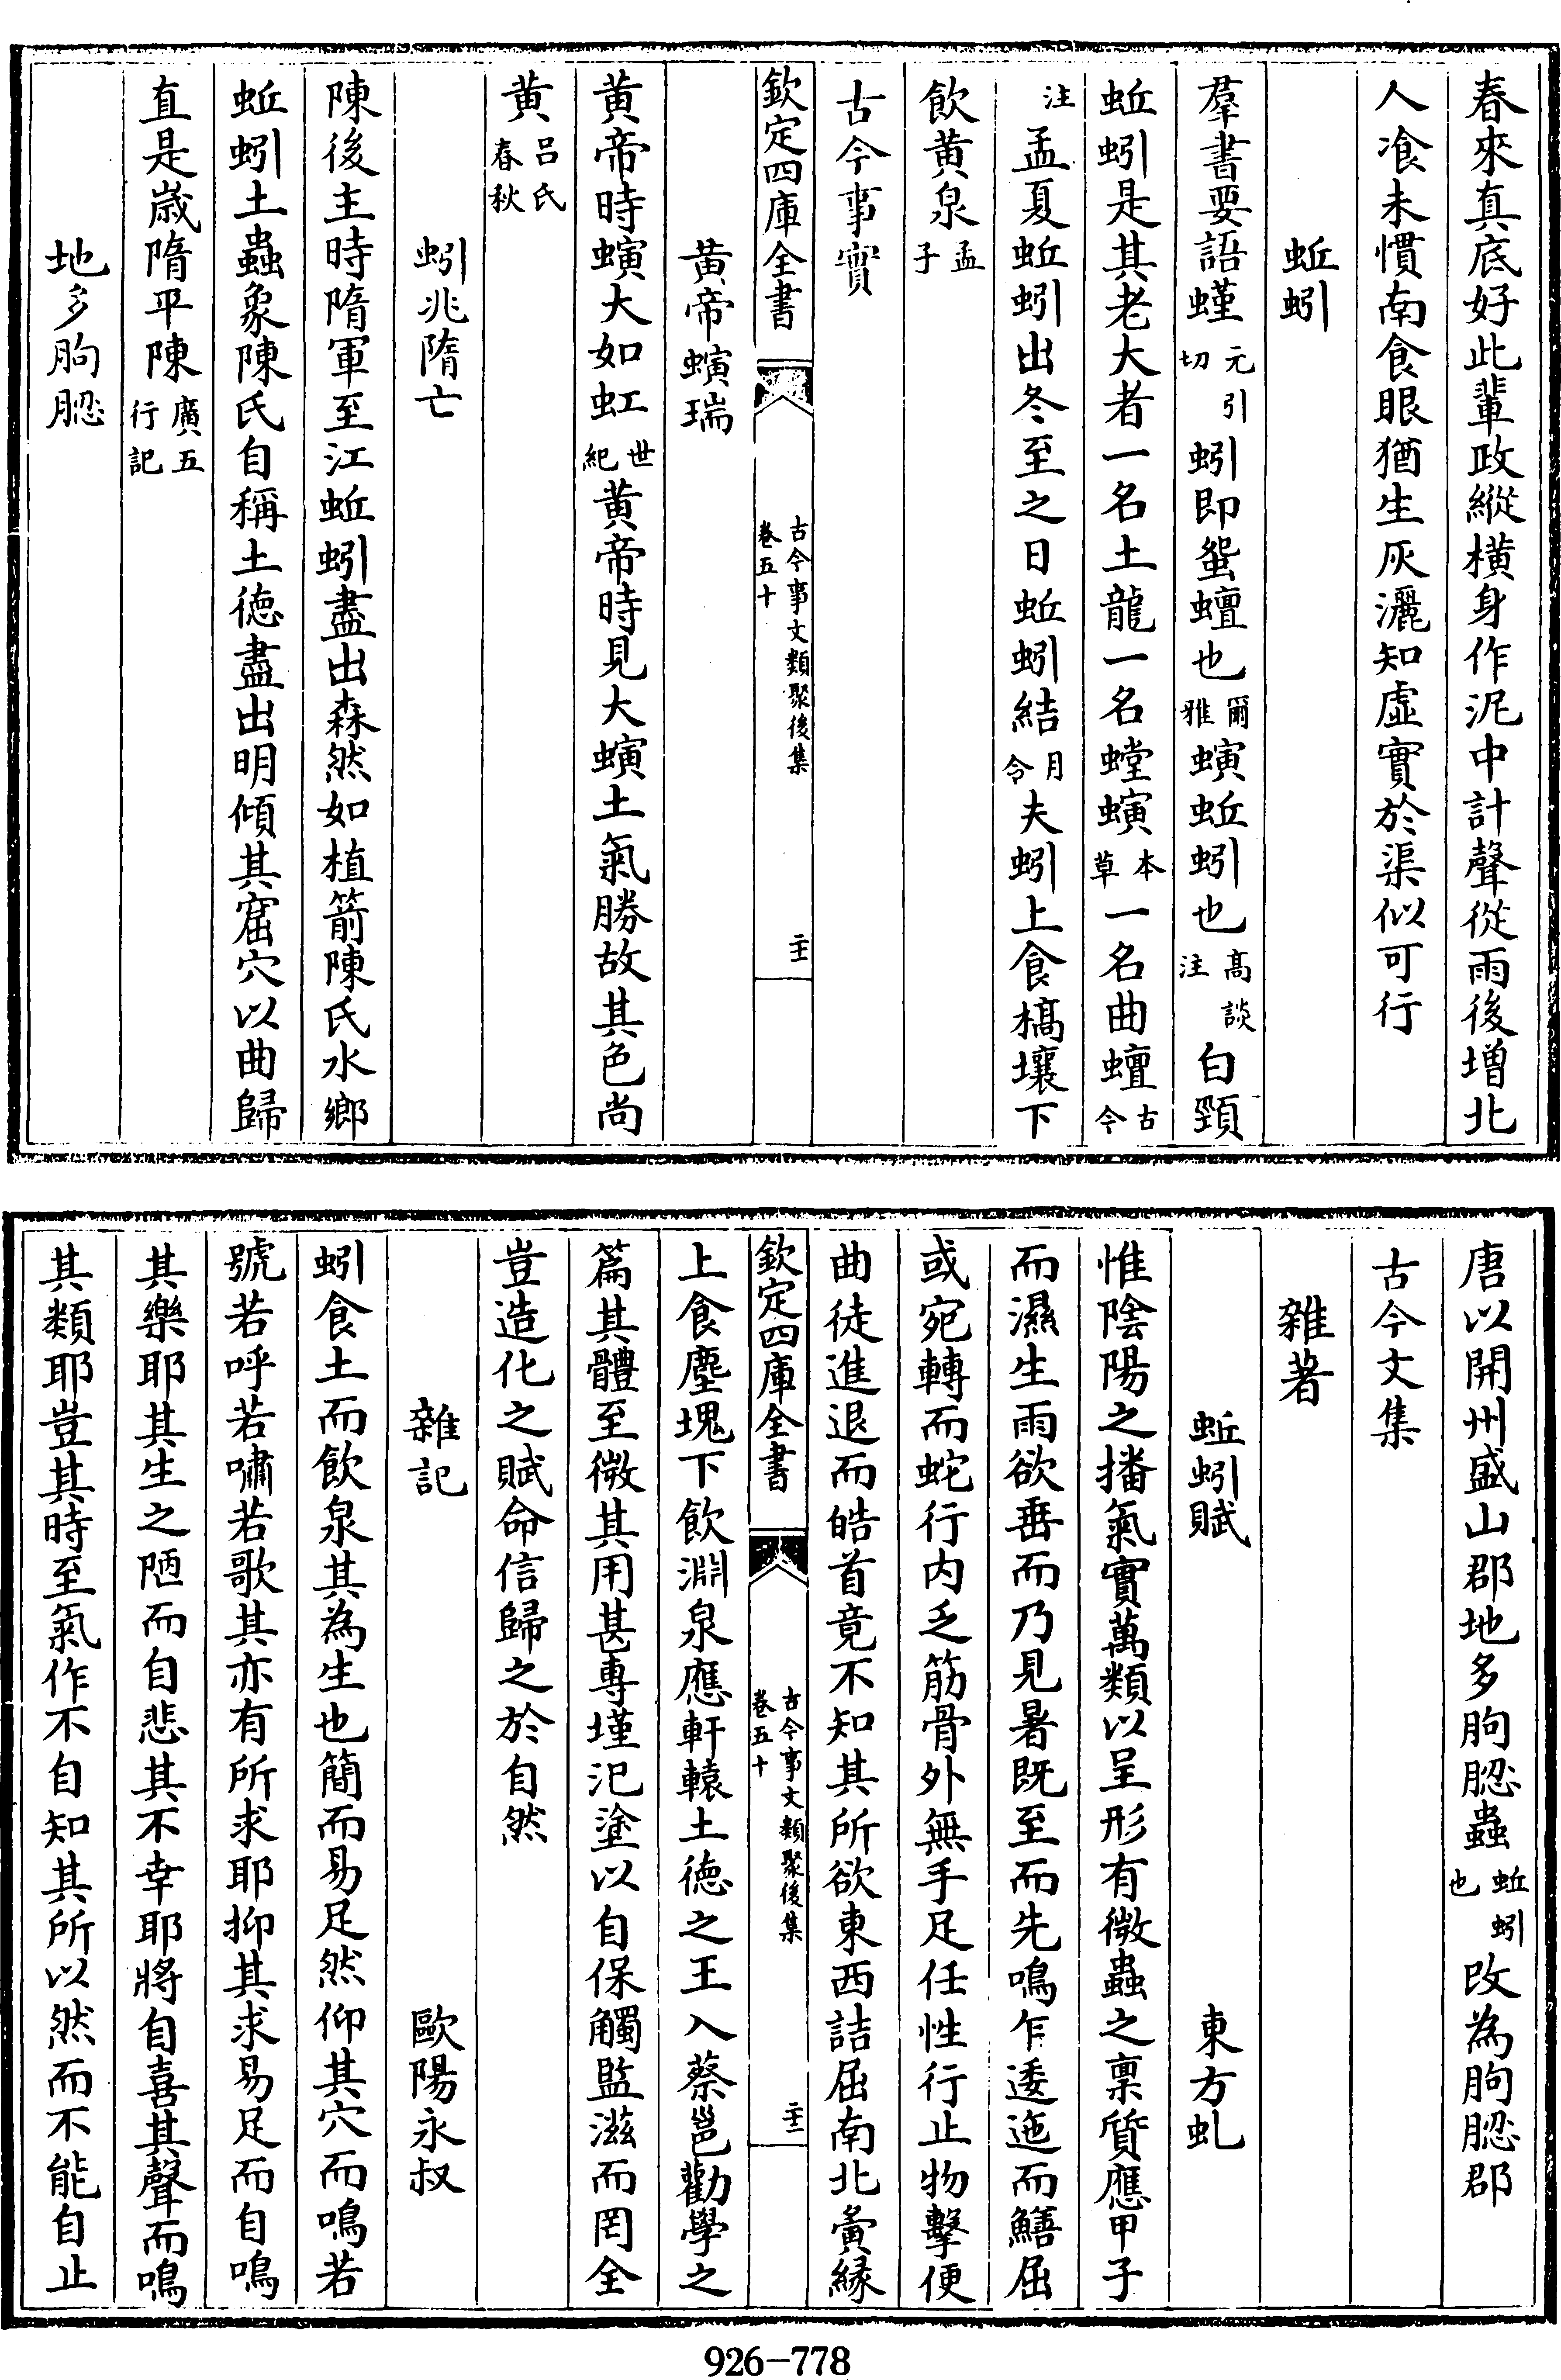 春來真底好此輩政縱橫身作泥中計聲從雨後増北
人飡未慣南食眼猶生灰灑知虛實於渠似可行
蚯蚓
羣書要語螼元引切蚓即蜸蠶也爾雅螾蚯蚓也髙談注白頸
蚯蚓是其老大者一名土龍一名螳螾本草一名曲蟺古今
注孟夏蚯蚓出冬至之日蚯蚓結月令夫蚓上食槁壤下
飲黄泉孟子
古今事實
欽定四庫全書
古今事文類聚後集
卷五十
二十一
黄帝螾瑞
黄帝時螾大如虹世紀黄帝時見大螾土氣勝故其色尚
黄吕氏春秋
蚓兆隋亡
陳後主時隋軍至江蚯蚓盡出森然如植箭陳氏水鄉
蚯蚓土蟲象陳氏自稱土徳盡出明傾其窟穴以曲歸
直是嵗隋平陳廣五行記
地多朐䏰
唐以開州盛山郡地多朐䏰蟲蚯蚓也改為朐䏰郡
古今文集
雜著
蚯蚓賦
東方虬
惟陰陽之播氣實萬類以呈形有微蟲之禀質應甲子
而濕生雨欲垂而乃見暑既至而先鳴乍逶迤而鱔屈
或宛轉而蛇行内乏筋骨外無手足任性行止物擊便
曲徒進退而皓首竟不知其所欲東西詰屈南北夤縁
欽定四庫全書
古今事文類聚後集
卷五十
二十二
上食塵塊下飲淵泉應軒轅土徳之王入蔡邕勸學之
篇其體至微其用甚專墐汜塗以自保觸監滋而罔全
豈造化之賦命信歸之於自然
雜記
歐陽永叔
蚓食土而飲泉其為生也簡而易足然仰其穴而鳴若
號若呼若嘯若歌其亦有所求耶抑其求易足而自鳴
其樂耶其生之陋而自悲其不幸耶將自喜其聲而鳴
其類耶豈其時至氣作不自知其所以然而不能自止
926-778